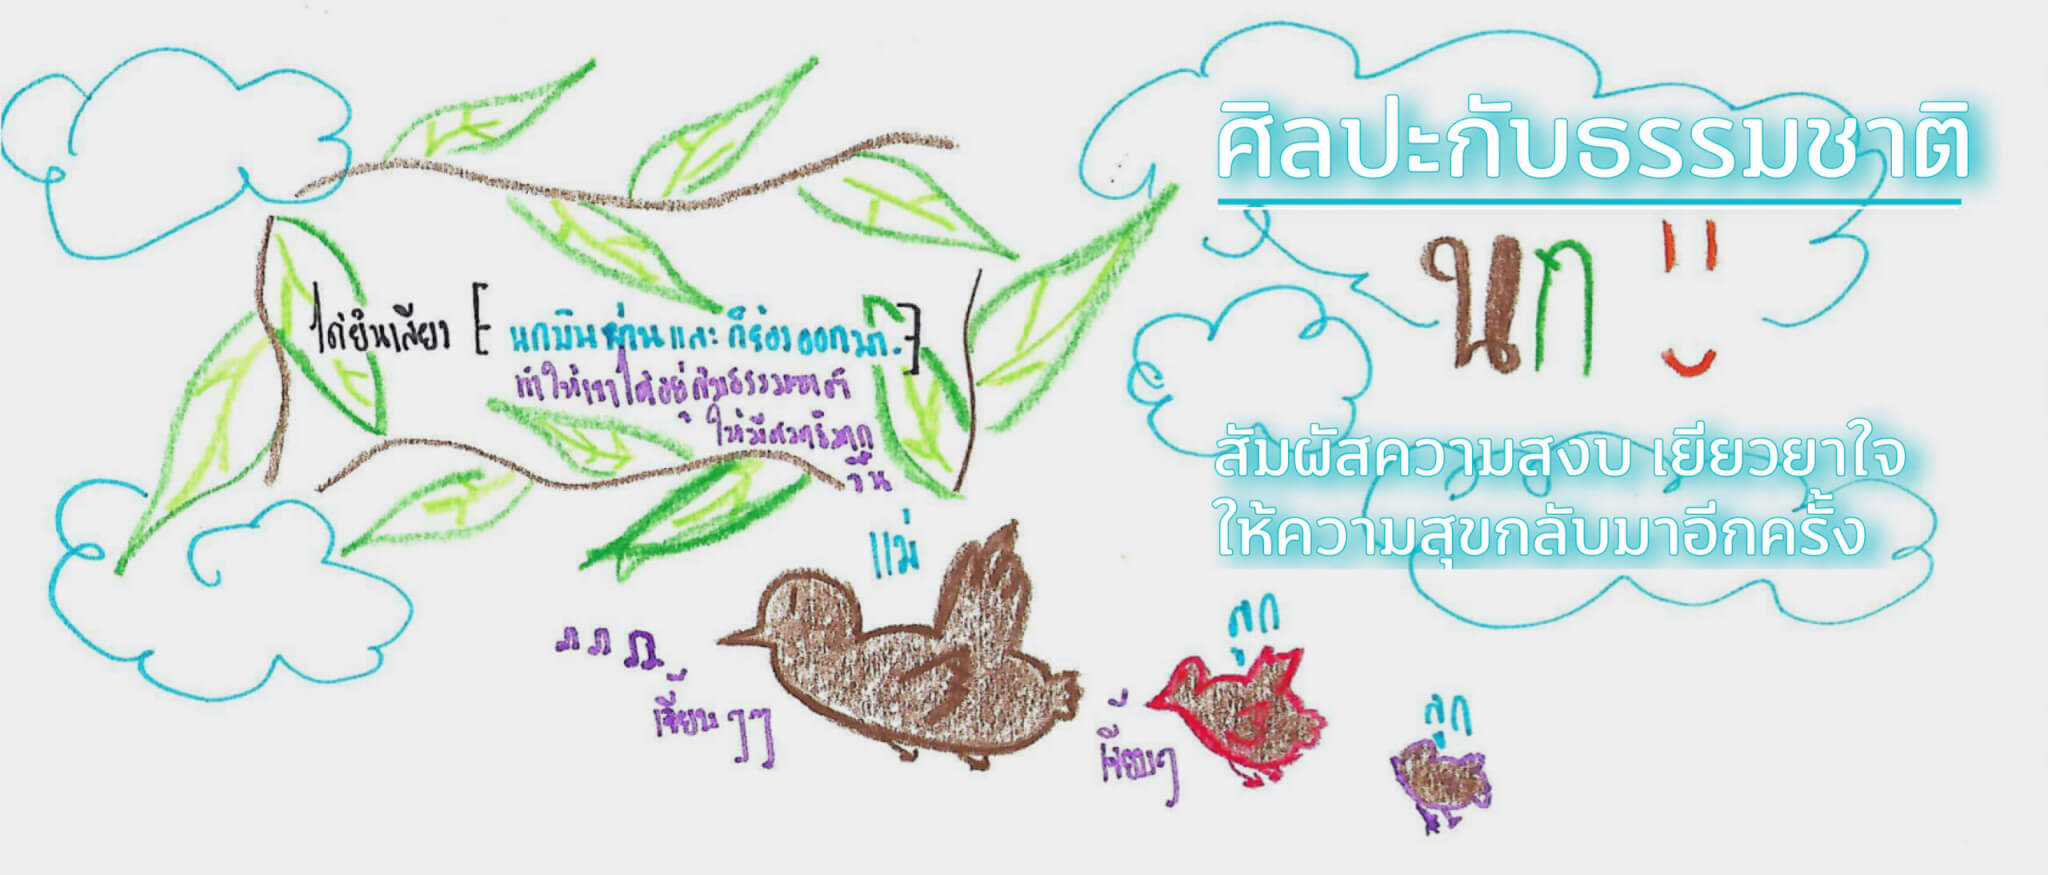 ศิลปะกับธรรมชาติ
นก
สัมผัสความสงบ เยียวยาใจ
ให้ความสุขกลับมาอีกครั้ง
ได้ยินเสียง [ นกบินผ่านและก็ร้องออกมา. ]
ทำให้เราได้อยู่กับธรรมชาติ
ให้มีความสุขทุก
วัน
แม่
ลูก
ลูก
เจี๊ยบๆๆ
เจี๊ยบๆ